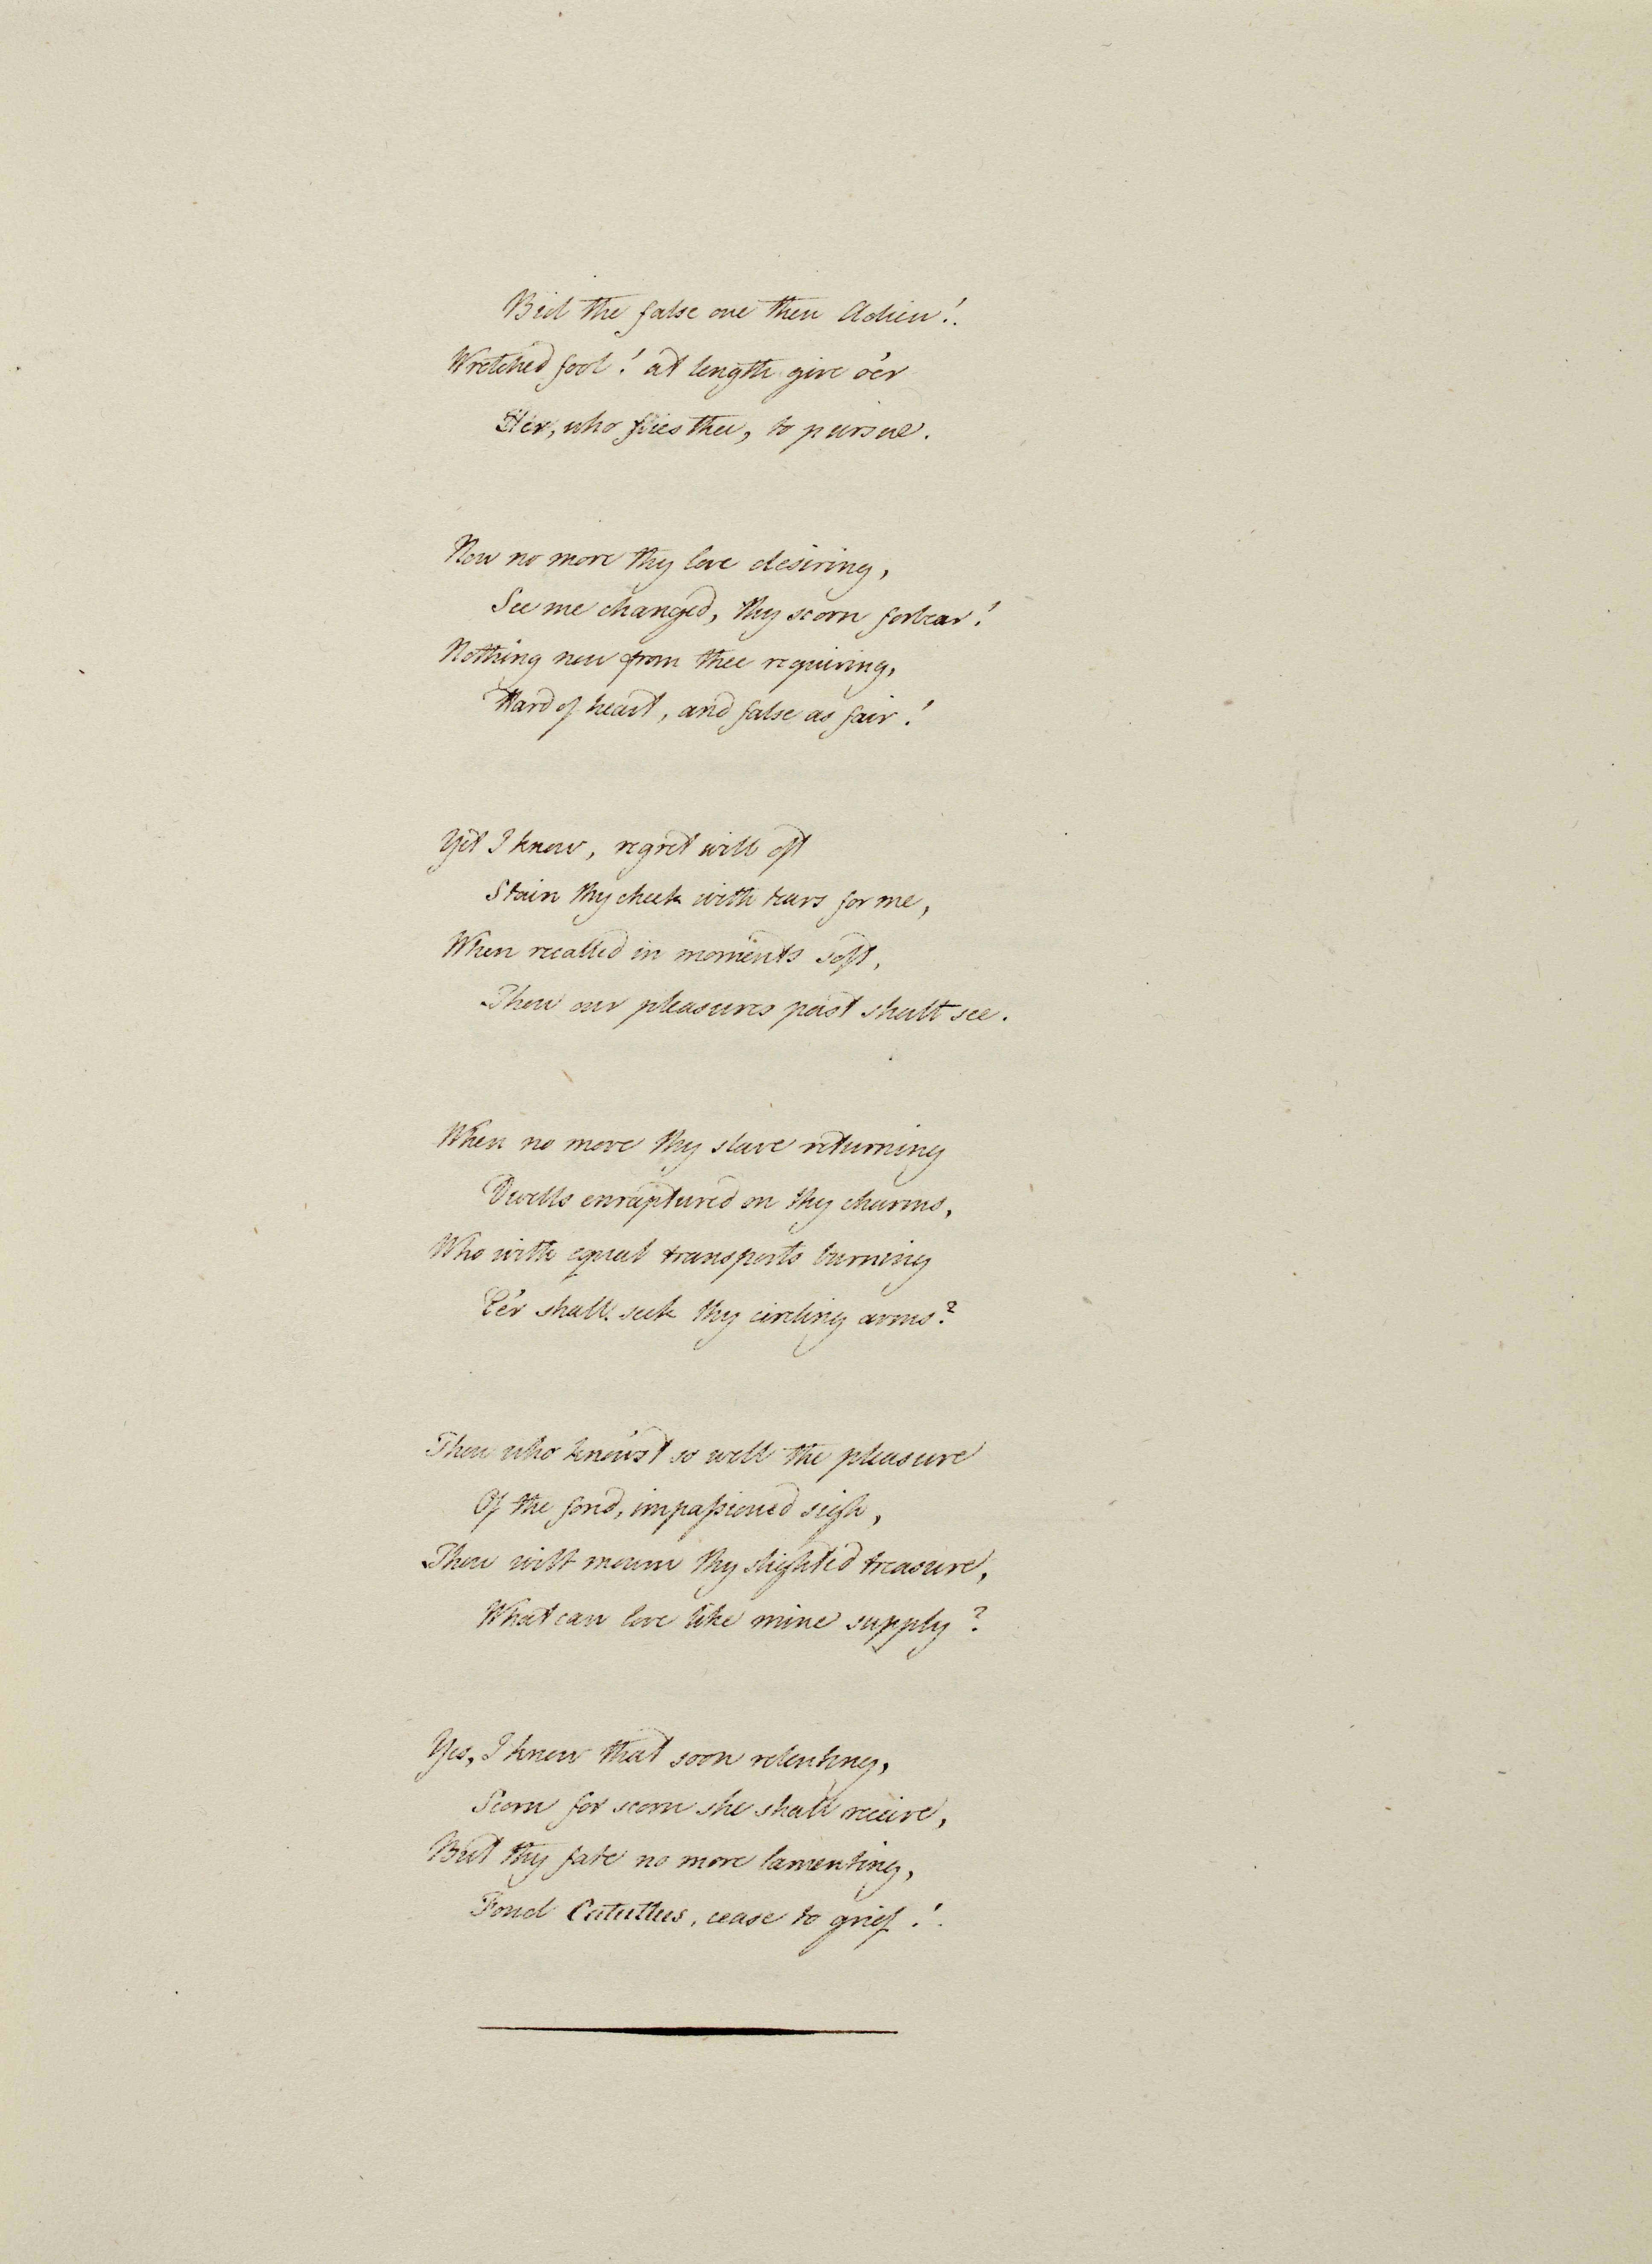 Bid the false one then Adieu!
Wretched fool! at length give o'er
Her, who flies thee, to pursue.
Now no more thy love desiring,
See me changed, thy scorn forbear!
Nothing now from thee requiring,
Hard of heart, and false as fair!
Yet I know, regret will oft
Stain thy cheek with tears for me,
When recalled in moments soft,
Thou our pleasures past shalt see.
When no more thy slave returning
Dwells enraptured on thy charms,
Who with equal transports burning
E'er shall seek thy circling arms?
Thou who know'st so well the pleasure
Of the fond, impaſsioned sigh,
Thou wilt mourn thy slighted treasure,
What can love like mine supply?
Yes, I know that soon relenting,
Scorn for scorn she shall receive,
But thy fate no more lamenting,
Fond Catullus, cease to grief!